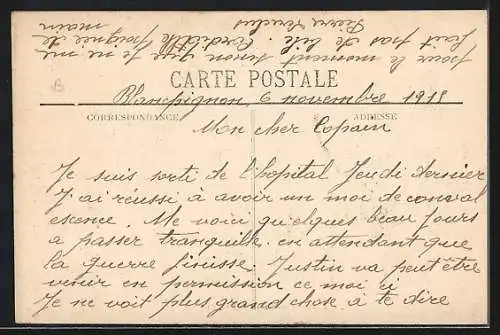 CARTE POSTALE
Blancpignon 6 novembre 1918
CORRESPONDANCE
ADRESSE
Mon cher Copain
Je suis sorti de l'hopital Jeudi dernier
J'ai réussi à avoir un moi de conval
escence. Me voici quelques beau jours
a passer tranquille. en attendant que
la guerre finisse. Justin va peut être
venir en permission ce moi ci
Je ne voit plus grand chose à te dire
pour le moment sinon que je ne me
fait pas de bile. Cordialle poignée de
main
Pierre
B